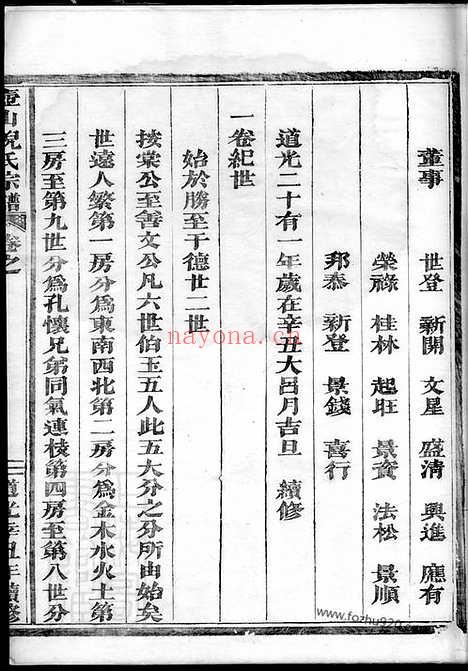 董事
世登 新開 文星 盛清 興進 應有
榮祿 桂林 起旺 景資 法松 景順
邦泰 新登 景錢 喜行
道光二十有一年歲在辛丑大呂月吉旦 續修
一卷紀世
始於勝至于德世二世
按棠公至善文公凡六世伯玉五人此五大分之分所由始矣
世遠人繁第一房分為東南西北第二房分為金木水火土第
三房至第九世分為孔懷兄弟同氣連枝第四房至第八世分
壺山倪氏宗譜 卷之一
道光辛丑年續修
nayona.cn
www.fozhu920.com